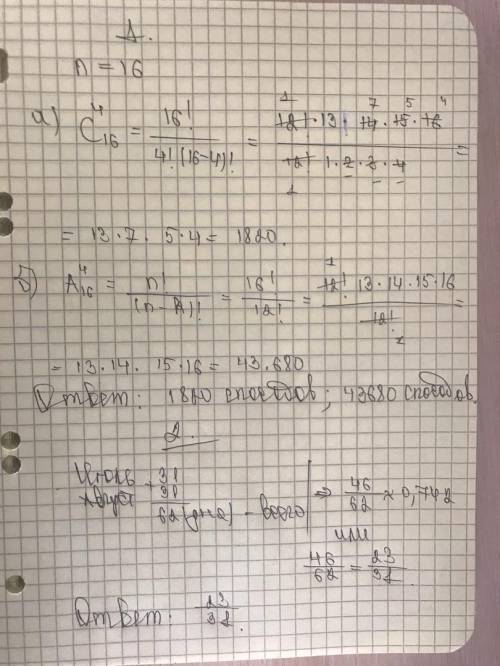 1.
n = 16
а) C₁₆⁴ = 16! / 4!(16-4)! = 12! · 13 · 14 · 15 · 16 / 12! 1 · 2 · 3 · 4 =
1 7 5 4
1
= 13 · 7 · 5 · 4 = 1820.
б) A₁₆⁴ = n! / (n - k)! = 16! / 12! = 12! 13 · 14 · 15 · 16 / 12! =
1
1
= 13 · 14 · 15 · 16 = 43.680
Ответ: 1820 способов; 43680 способов.
2.
Июль 31
Август + 31
62 (дня) - всего ⇒ 46/62 ≈ 0,742
или
46/62 = 23/31.
Ответ: 23/31.